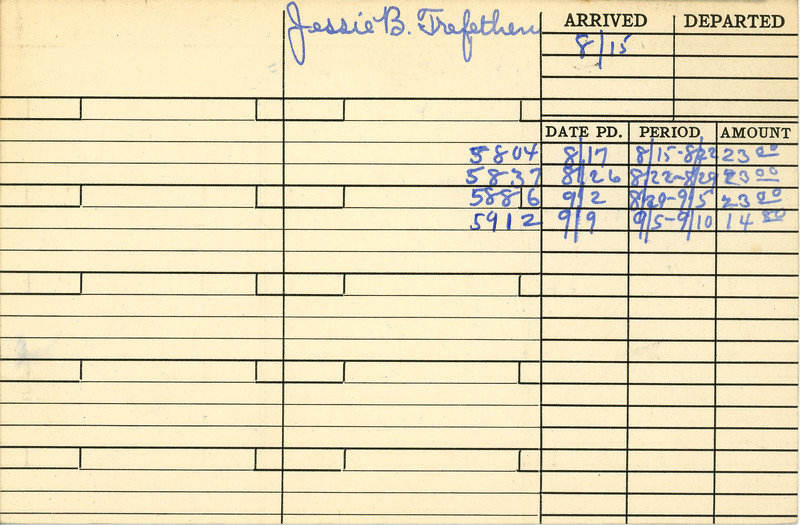 Jessie B. Trefethen
ARRIVED DEPARTED
8/15
DATE PD. PERIOD AMOUNT
5804 8/17 8/15-8/22 23 00
5837 8/26 8/22-8/29 23 00
5886 9/2 8/29-9/5 23 00
5912 9/9 9/5-9/10 14 80